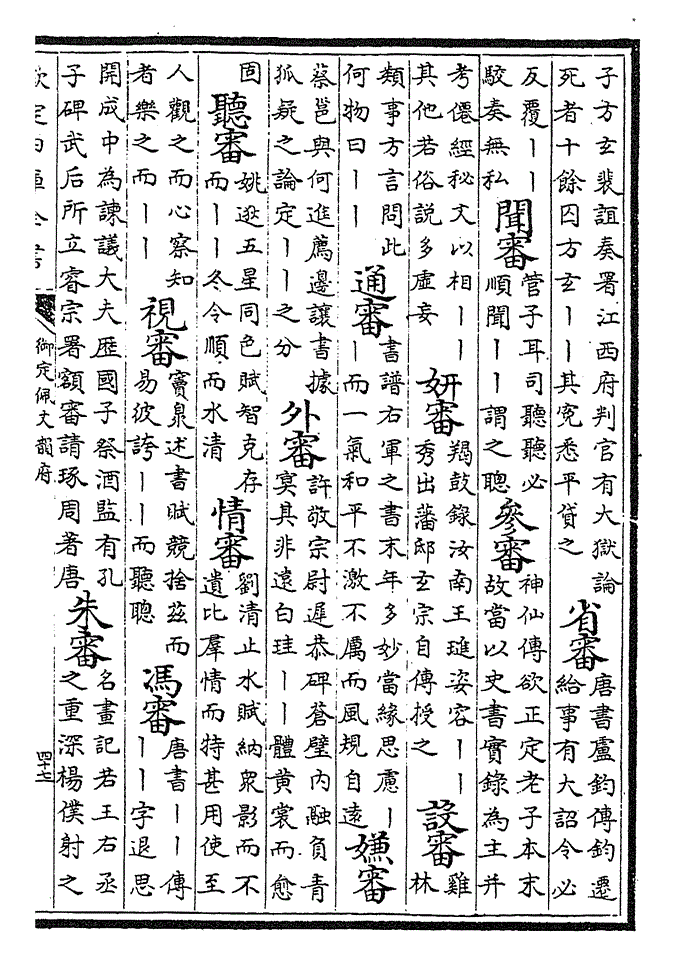 子方玄裴誼奏署江西府判官有大獄論
死者十餘囚方玄丨丨其寃悉平貸之
省審
唐書盧鈞傳鈞遷
給事有大詔令必
反覆丨丨
駮奏無私
聞審
管子耳司聽聽必
順聞丨丨謂之聰
參審
神仙傳欲正定老子本末
故當以史書實錄為主并
考僊經秘文以相丨丨
其他若俗說多虛妄
妍審
羯鼓錄汝南王璡姿容丨丨
秀出藩邸玄宗自傳授之
設審
雞
林
類事方言問此
何物曰丨丨
通審
書譜右軍之書末年多妙當緣思慮丨
丨而一氣和平不激不厲而風規自遠
嫌審
蔡邕與何進薦邊讓書據
狐疑之論定丨丨之分
外審
許敬宗尉遲恭碑蒼璧内融負青
冥其非遠白珪丨丨體黄裳而愈
固
聽審
姚逖五星同色賦智克存
而丨丨冬令順而水清
情審
劉清止水賦納衆影而不
遺比羣情而特甚用使至
人觀之而心察知
者樂之而丨丨
視審
竇泉述書賦競捨茲而
易彼誇丨丨而聽聰
馮審
唐書丨丨傳
丨丨字退思
開成中為諫議大夫歴國子祭酒監有孔
子碑武后所立睿宗署額審請琢周著唐
朱審
名畫記若王右丞
之重深楊僕射之
欽定四庫全書
御定佩文韻府
四十七